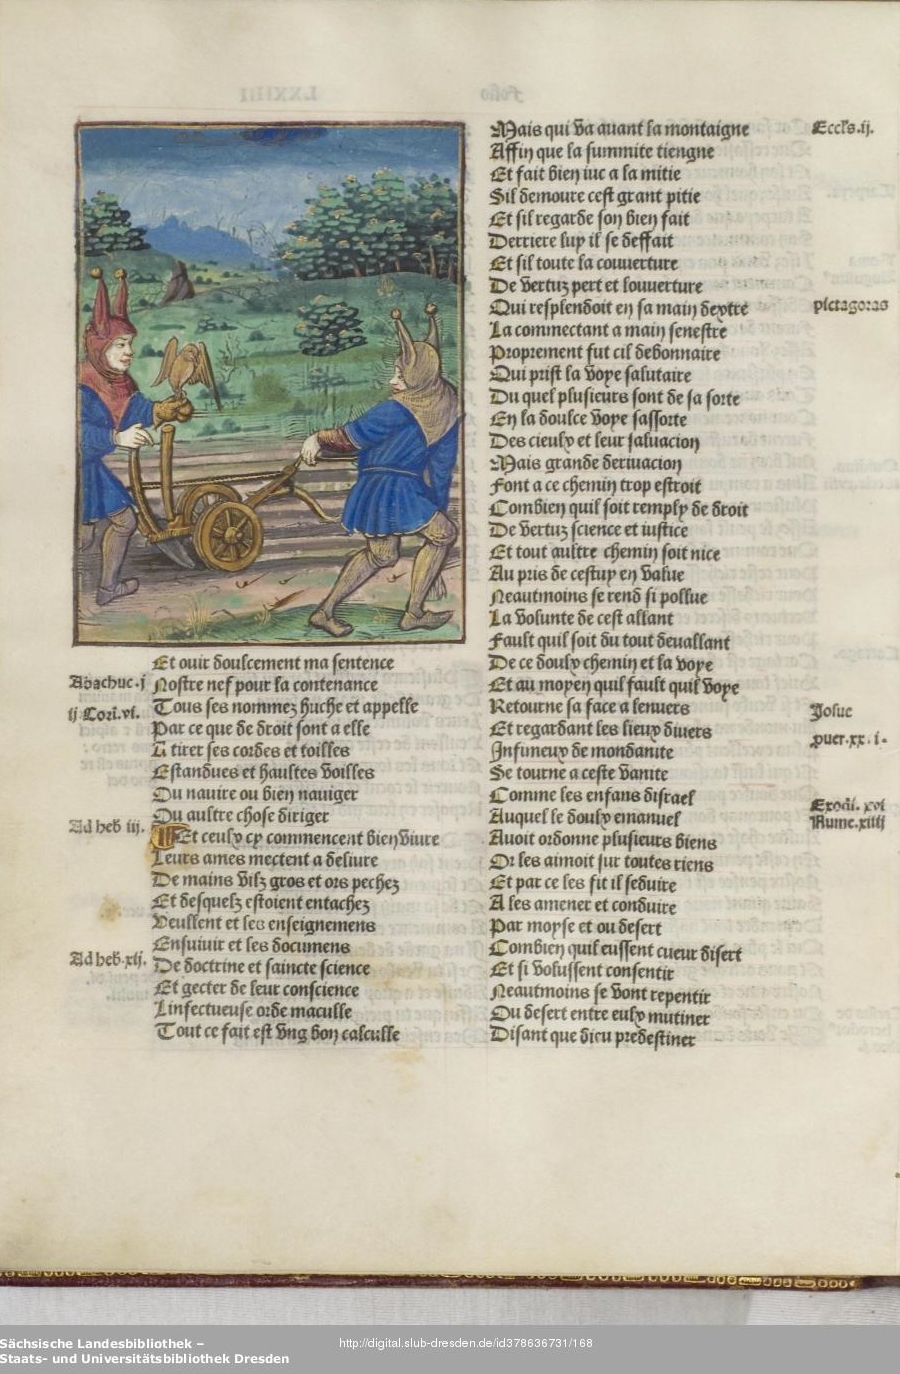 Et ouir doulcement ma sentence
Abachuc.j
Nostre nef pour la contenance
Tous ses nommez huche et appelle
ij Cori.vi.
Par ce que de droit sont a elle
A tirer ses cordes et toilles
Estandues et haultes voilles
Ou nauire ou bien nauiger
Ou aultre chose diriger
Ad heb iij.
Et ceulx cy commencent bien viure
Leurs ames mectent a deliure
De mains vilz gros et ors pechez
Et desquelz estoient entachez
Veullent et les enseignemens
Ensuiuir et les documens
Ad heb.xij.
De doctrine et saincte science
Et gecter de leur conscience
Linfectueuse orde maculle
Tout ce fait est vng bon calculle
Mais qui va auant la montaigne
Eccls.ij.
Affin que la summite tiengne
Et fait bien iuc a la mitie
Sil demoure cest grant pitie
Et sil regarde son bien fait
Derriere luy il se deffait
Et sil toute la couuerture
De vertuz pert et louuerture
Qui resplendoit en sa main dextre
pictagoras
La commectant a main senestre
Proprement fut cil debonnaire
Qui prist la voye salutaire
Du quel plusieurs sont de sa sorte
En la doulce voye sassorte
Des cieulx et leur saluacion
Mais grande deriuacion
Font a ce chemin trop estroit
Combien quil soit remply de droit
De vertuz science et iustice
Et tout aultre chemin soit nice
Au pris de cestuy en value
Neautmoins se rend si pollue
La volunte de cest allant
Fault quil soit du tout deuallant
De ce doulx chemin et la voye
Et au moyen quil fault quil voye
Retourne sa face a lenuers
Josue
Et regardant les lieux diuers
puer.xx.i.
Infimeux de mondanite
Se tourne a ceste vanite
Comme les enfans disrael
Exodi.xvi
Auquel le doulx emanuel
Nume.xiiij
Auoit ordonne plusieurs biens
Or les aimoit sur toutes riens
Et par ce les fit il seduire
A les amener et conduire
Par moyse et ou desert
Combien quil eussent cueur disert
Et si volussent consentir
Neautmoins se vont repentir
Ou desert entre eulx mutiner
Disant que dieu predestiner
Sächsische Landesbibliothek –
Staats- und Universitätsbibliothek Dresden
http://digital.slub-dresden.de/id378636731/168